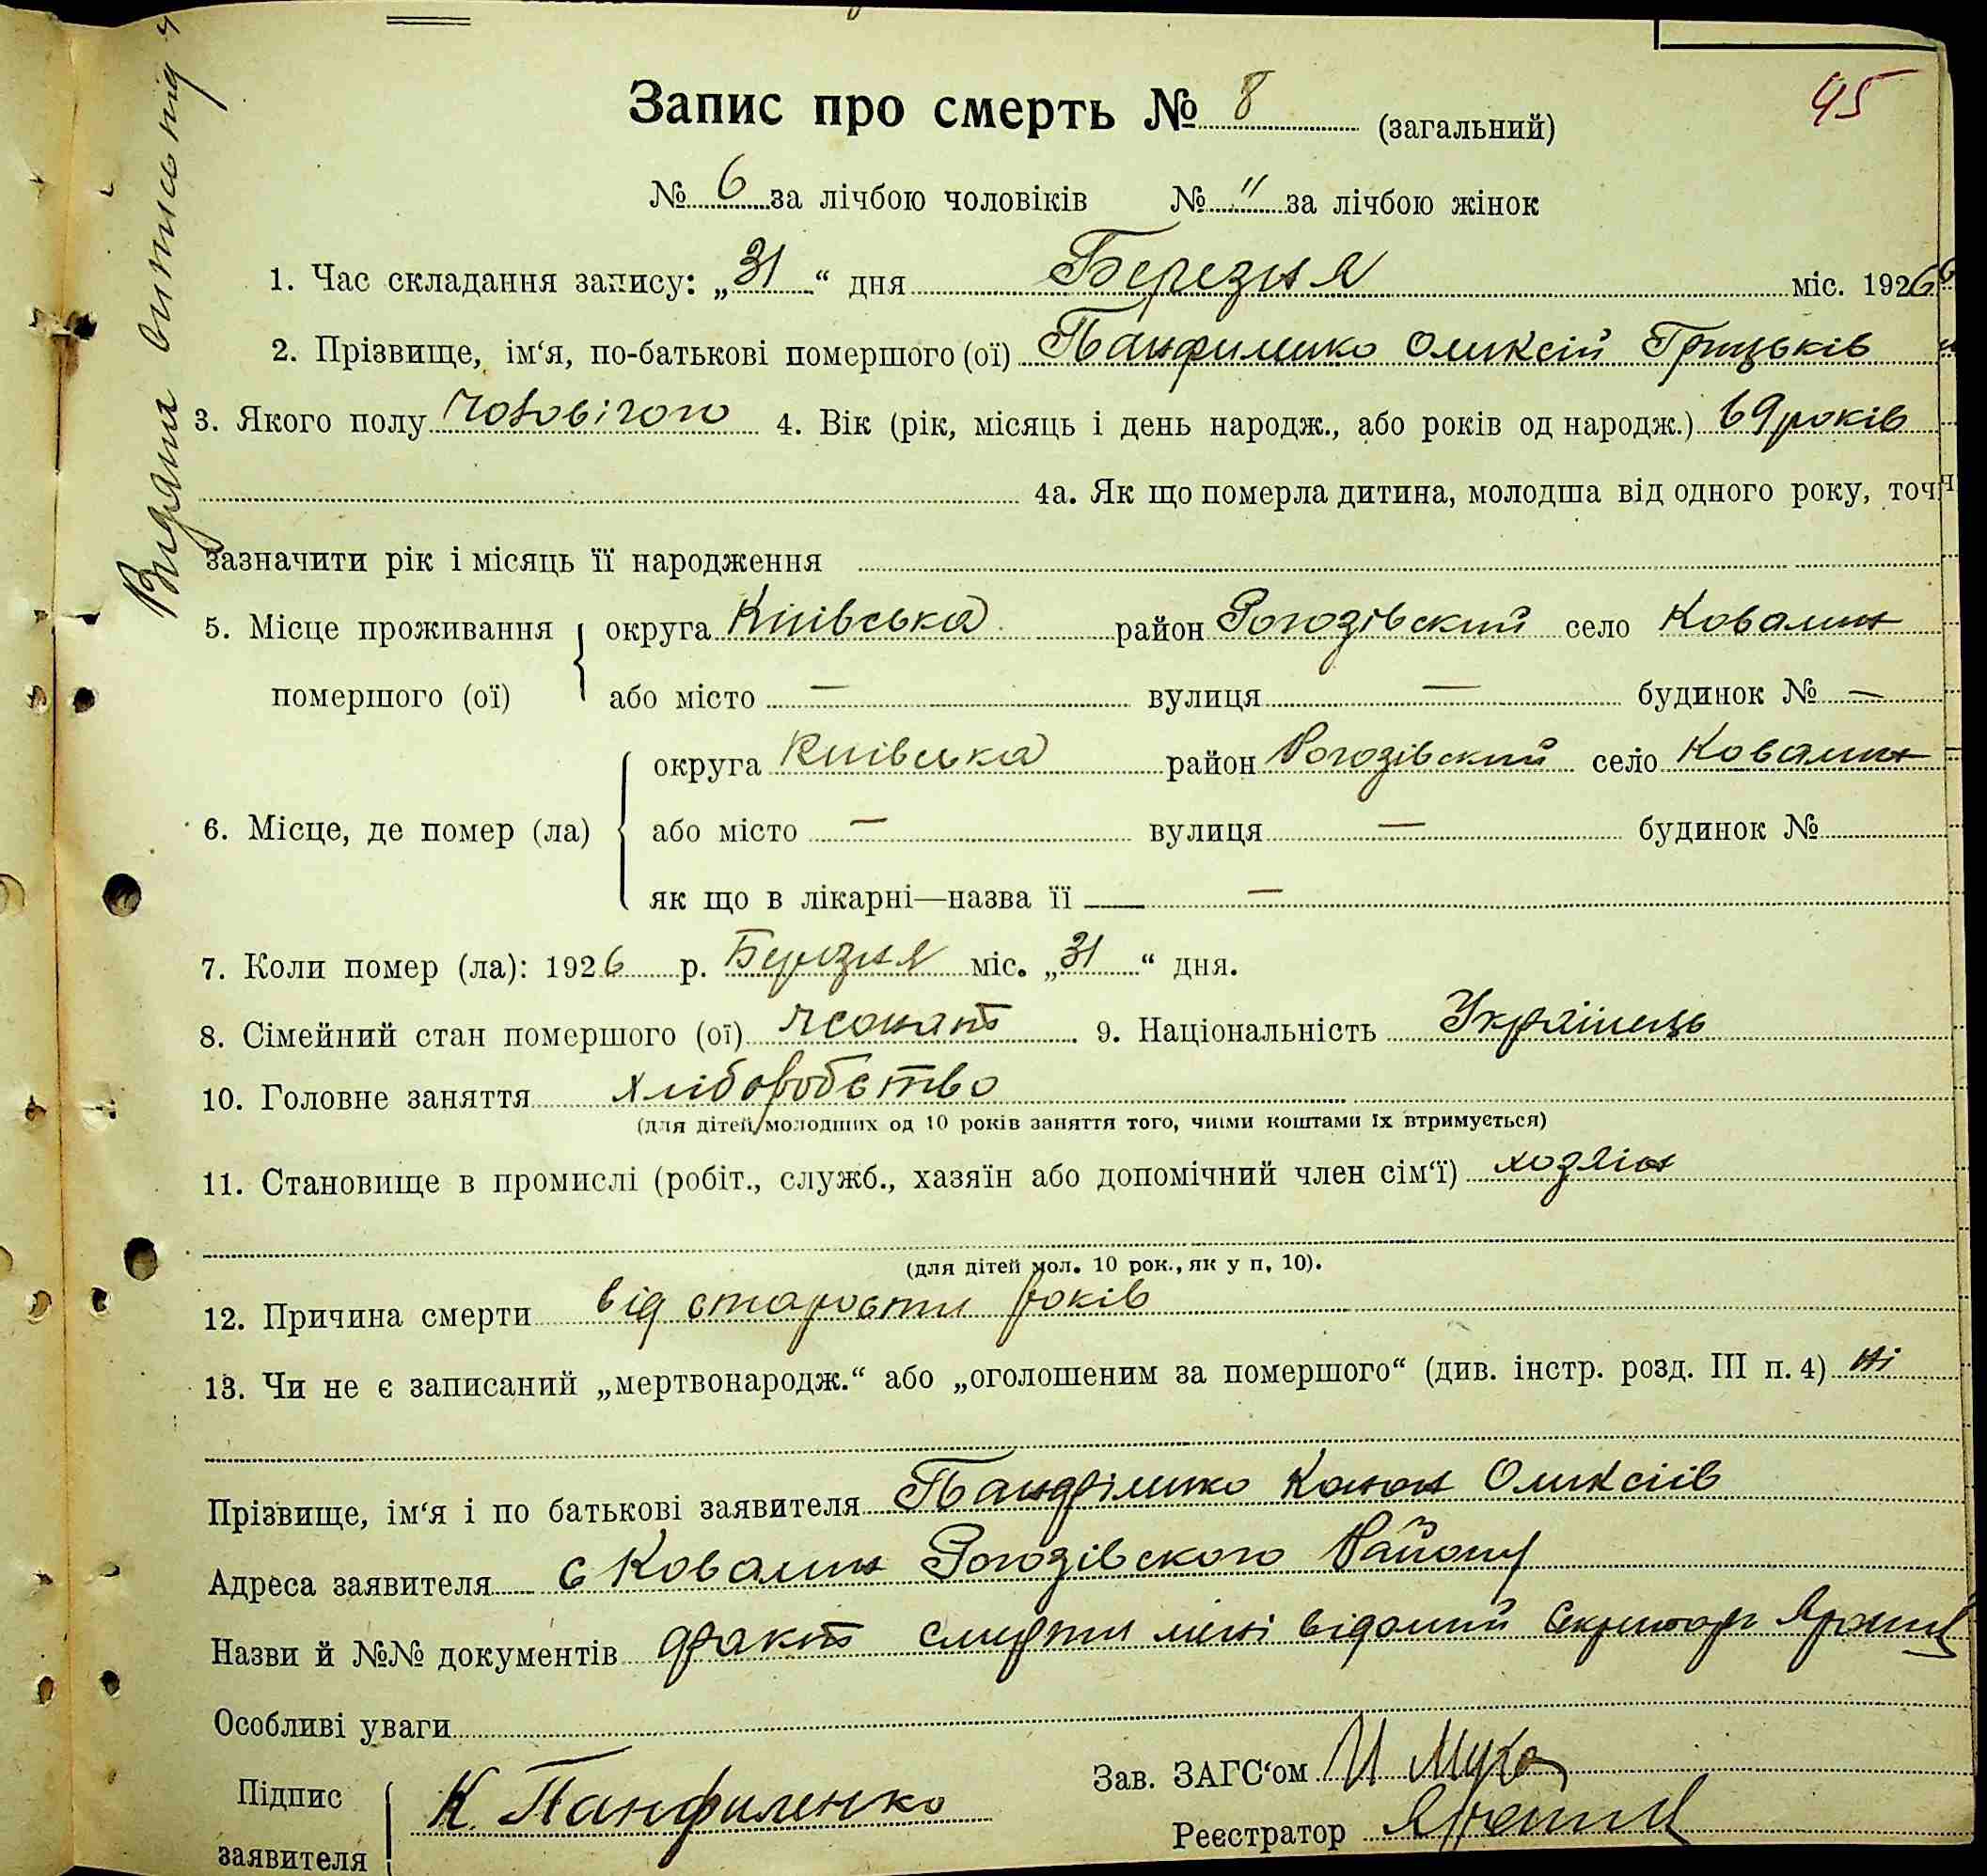 45
Запис про смерть № 8 (загальний)
№ 6 за лічбою чоловіків № " за лічбою жінок
1. Час складання запису: „31“ дня Березня міс. 1926
2. Прізвище, ім‘я, по-батькові помершого (ої) Панфиленко Олексій Грицьків
3. Якого полу чоловічого 4. Вік (рік, місяць і день народж., або років од народж.) 69 років
4а. Як що померла дитина, молодша від одного року, точ
зазначити рік і місяць її народження
5. Місце проживання помершого (ої) { округа Київська район Рогозівский село Ковалин
або місто — вулиця — будинок № —
6. Місце, де помер (ла) { округа Київська район Рогозівский село Ковалин
або місто — вулиця — будинок №
як що в лікарні—назва її —
7. Коли помер (ла): 1926 р. Березня міс. „31“ дня.
8. Сімейний стан помершого (ої) жонат 9. Національність Українець
10. Головне заняття хліборобство
(для дітей молодших од 10 років заняття того, чиїми коштами їх втримується)
11. Становище в промислі (робіт., служб., хазяїн або допомічний член сім‘ї) хозяін
(для дітей мол. 10 рок., як у п. 10).
12. Причина смерти від старости років
13. Чи не є записаний „мертвонародж.“ або „оголошеним за помершого“ (див. інстр. розд. III п. 4) ні
Прізвище, ім‘я і по батькові заявителя Панфіленко Конон Олексіїв
Адреса заявителя с Ковалин Рогозівского Району
Назви й №№ документів факт смерти мені відомий Секретарь
Особливі уваги
Підпис заявителя { К. Панфиленко
Зав. ЗАГС‘ом И Муха
Реєстратор
Видана виписька